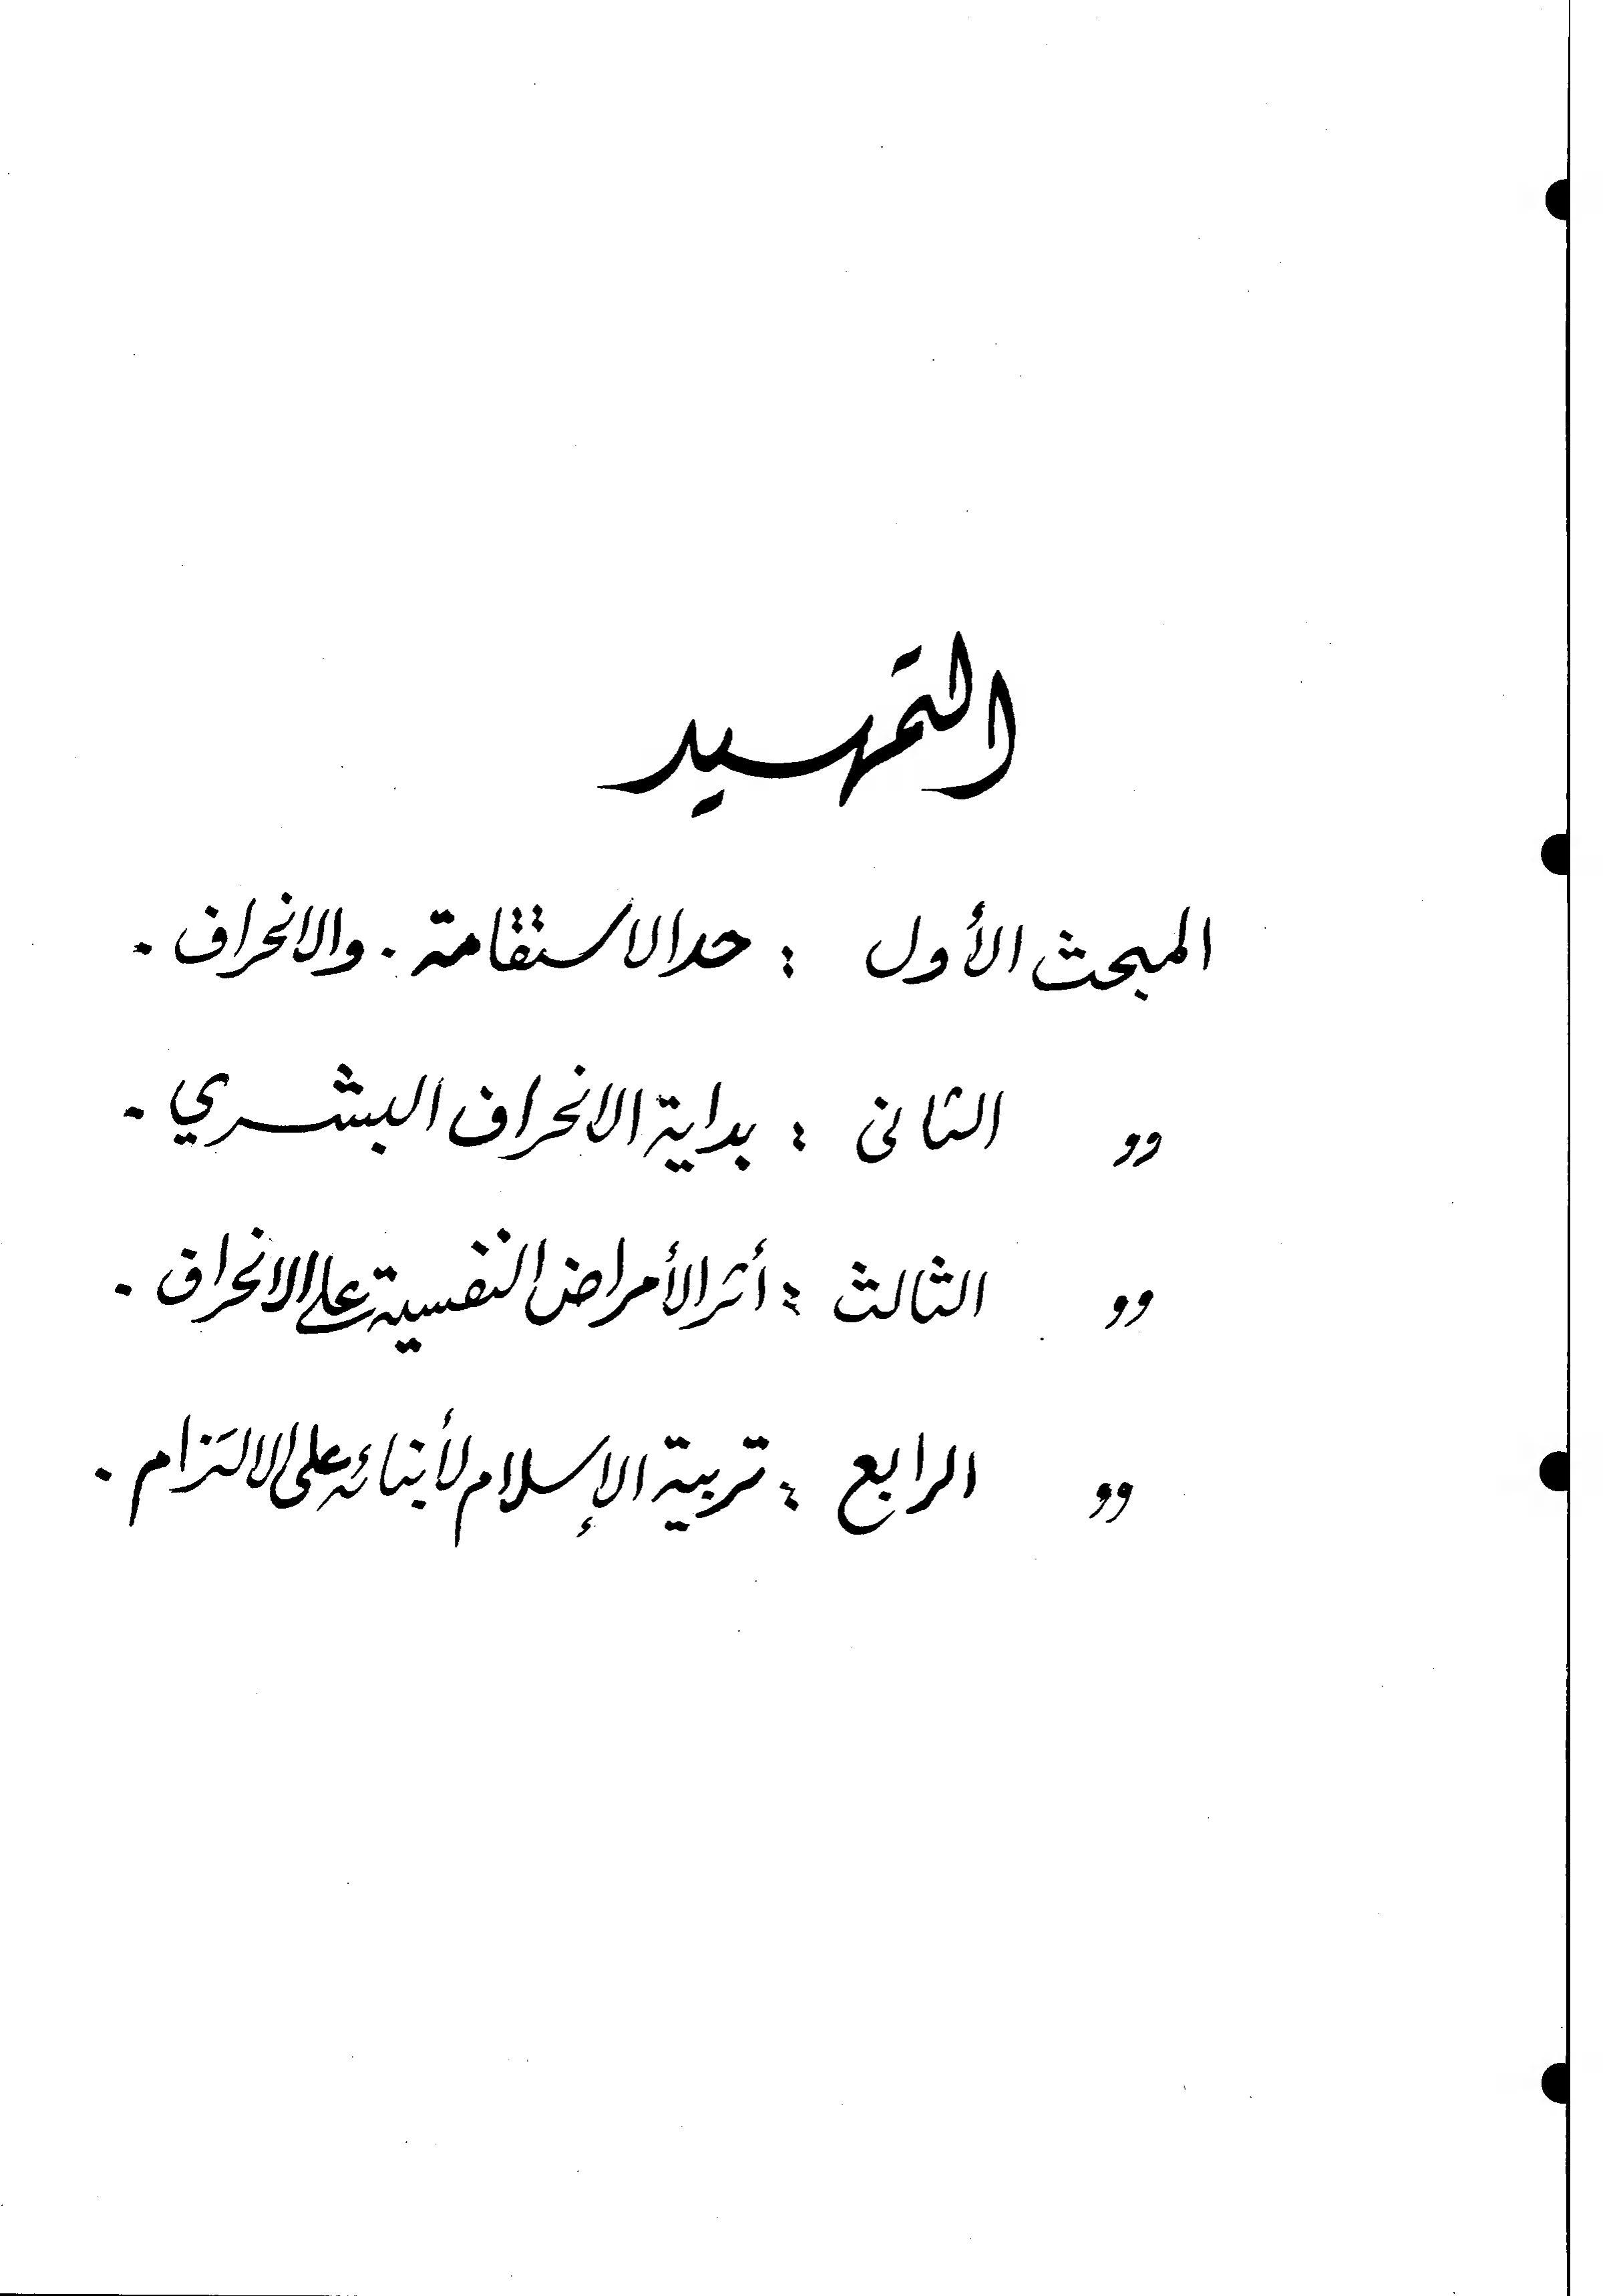 التمهيد
المبحث الأول : حد الاستقامة . والانحراف .
وو الثانى : بداية الانحراف البشري .
وو الثالث : أثر الأمراض النفسية على الانحراف .
وو الرابع : تربية الإسلام لأبنائه على الالتزام .